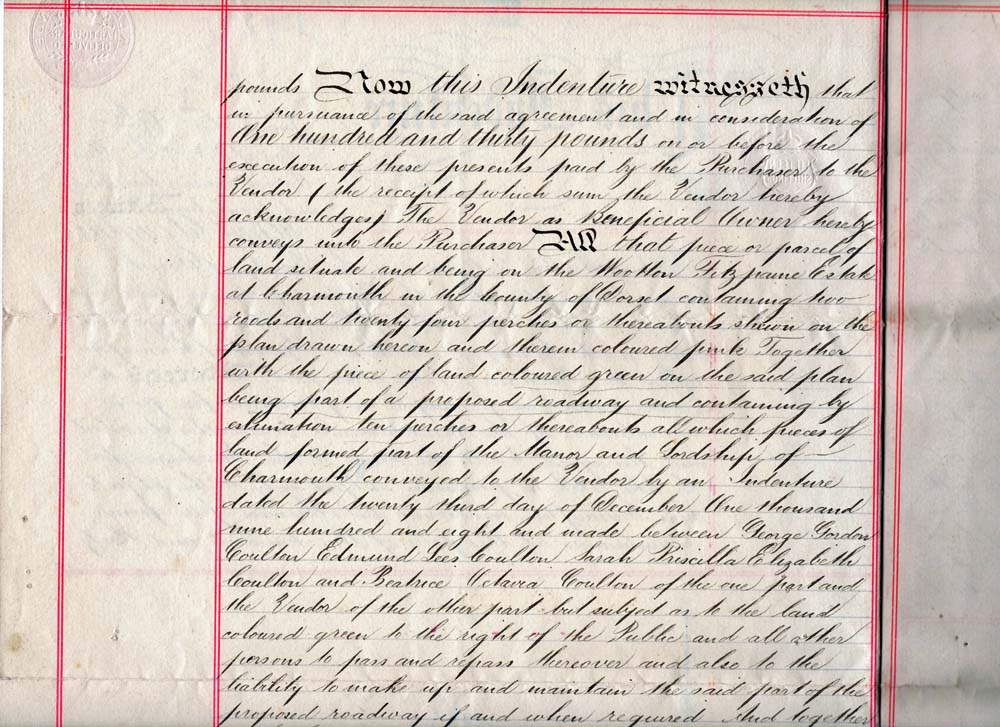 pounds Now this Indenture witnesseth that
in pursuance of the said agreement and in consideration of
One hundred and thirty pounds on or before the
execution of these presents paid by the Purchaser to the
Vendor (the receipt of which sum the Vendor hereby
acknowledges) The Vendor as Beneficial Owner hereby
conveys unto the Purchaser All that piece or parcel of
land situate and being on the Wootton Fitzpaine Estate
at Charmouth in the County of Dorset containing two
roods and twenty four perches or thereabouts shewn on the
plan drawn hereon and therein coloured pink Together
with the piece of land coloured green on the said plan
being part of a proposed roadway and containing by
estimation ten perches or thereabouts all which pieces of
land formed part of the Manor and Lordship of
Charmouth conveyed to the Vendor by an Indenture
dated the twenty third day of December One thousand
nine hundred and eight and made between George Gordon
Coulton Edmund Lees Coulton Sarah Priscilla Elizabeth
Coulton and Beatrice Octavia Coulton of the one part and
the Vendor of the other part but subject as to the land
coloured green to the right of the Public and all other
persons to pass and repass thereover and also to the
liability to make up and maintain the said part of the
proposed roadway if and when required And together